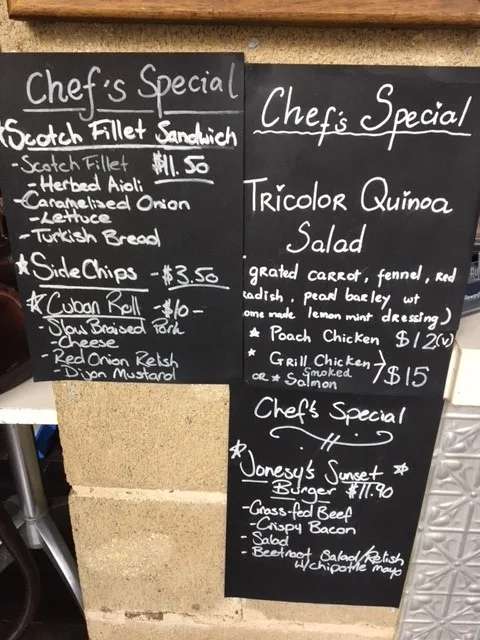 Chef's Special
Scotch Fillet Sandwich
- Scotch Fillet $11.50
- Herbed Aioli
- Caramelised Onion
- Lettuce
- Turkish Bread
Side Chips - $3.50
Cuban Roll - $10 -
- Slow Braised Pork
- Cheese
- Red Onion Relish
- Dijon Mustard
Chef's Special
Tricolor Quinoa
Salad
grated carrot, fennel, red
adish, pearl barley wt
ome made lemon mint dressing)
* Poach Chicken $12(v)
* Grill Chicken
or * Smoked Salmon $15
Chef's Special
Jonesy's Sunset
Burger $11.90
- Grass-fed Beef
- Crispy Bacon
- Salad
- Beetroot Salad/Relish
w/chipotle mayo